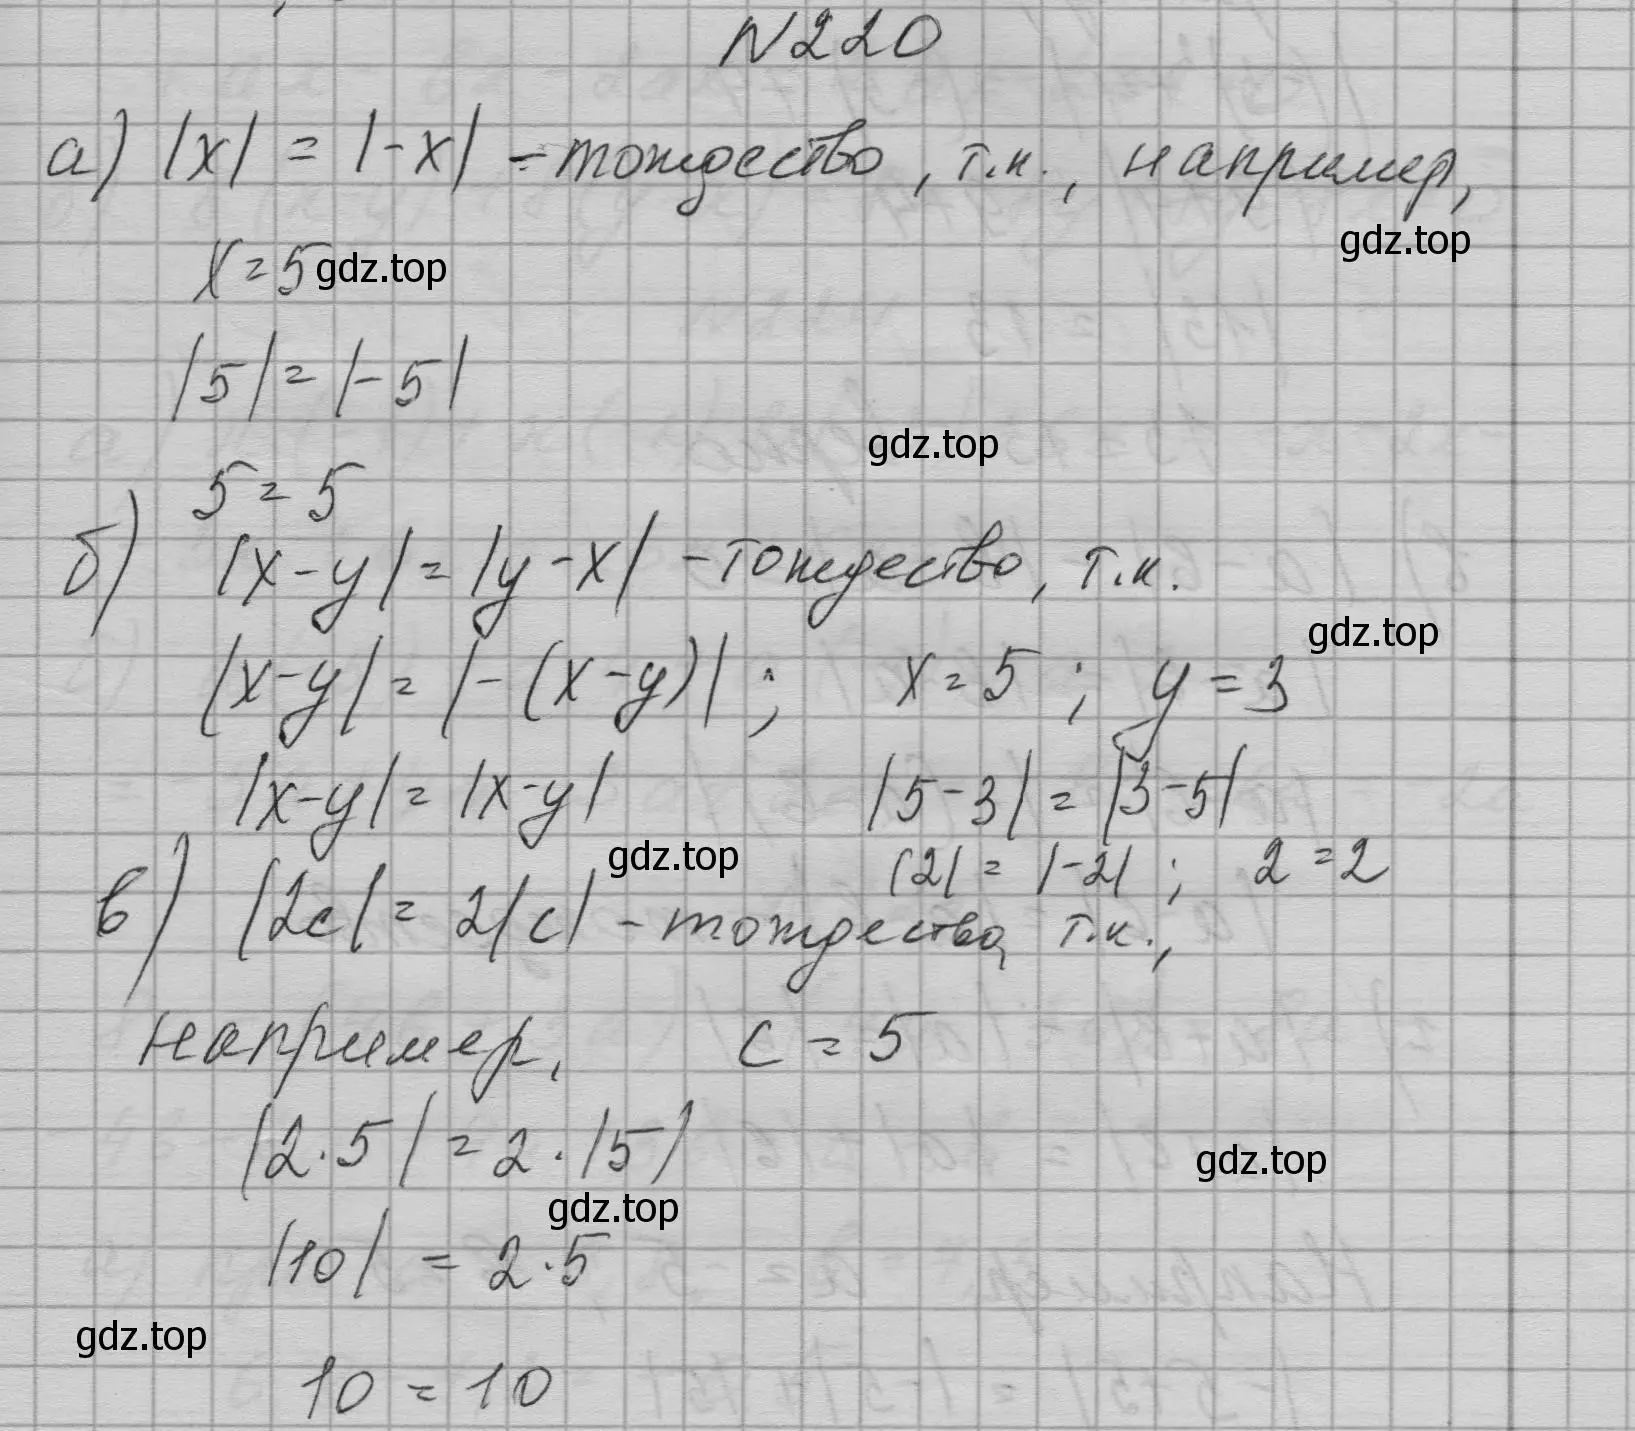 N220
а) |x| = |-x| - тождество, т.к., например,
gdz.top
x = 5 gdz.top
|5| = |-5|
gdz.top
5 = 5
б) |x-y| = |y-x| - тождество, т.к.
gdz.top
|x-y| = |-(x-y)| ; x = 5 ; y = 3
|x-y| = |x-y| |5-3| = |3-5|
gdz.top
|2| = |-2| ; 2 = 2
в) |2c| = 2|c| - тождество, т.к.,
например, c = 5
|2·5| = 2·|5|
gdz.top
gdz.top
|10| = 2·5
gdz.top
10 = 10